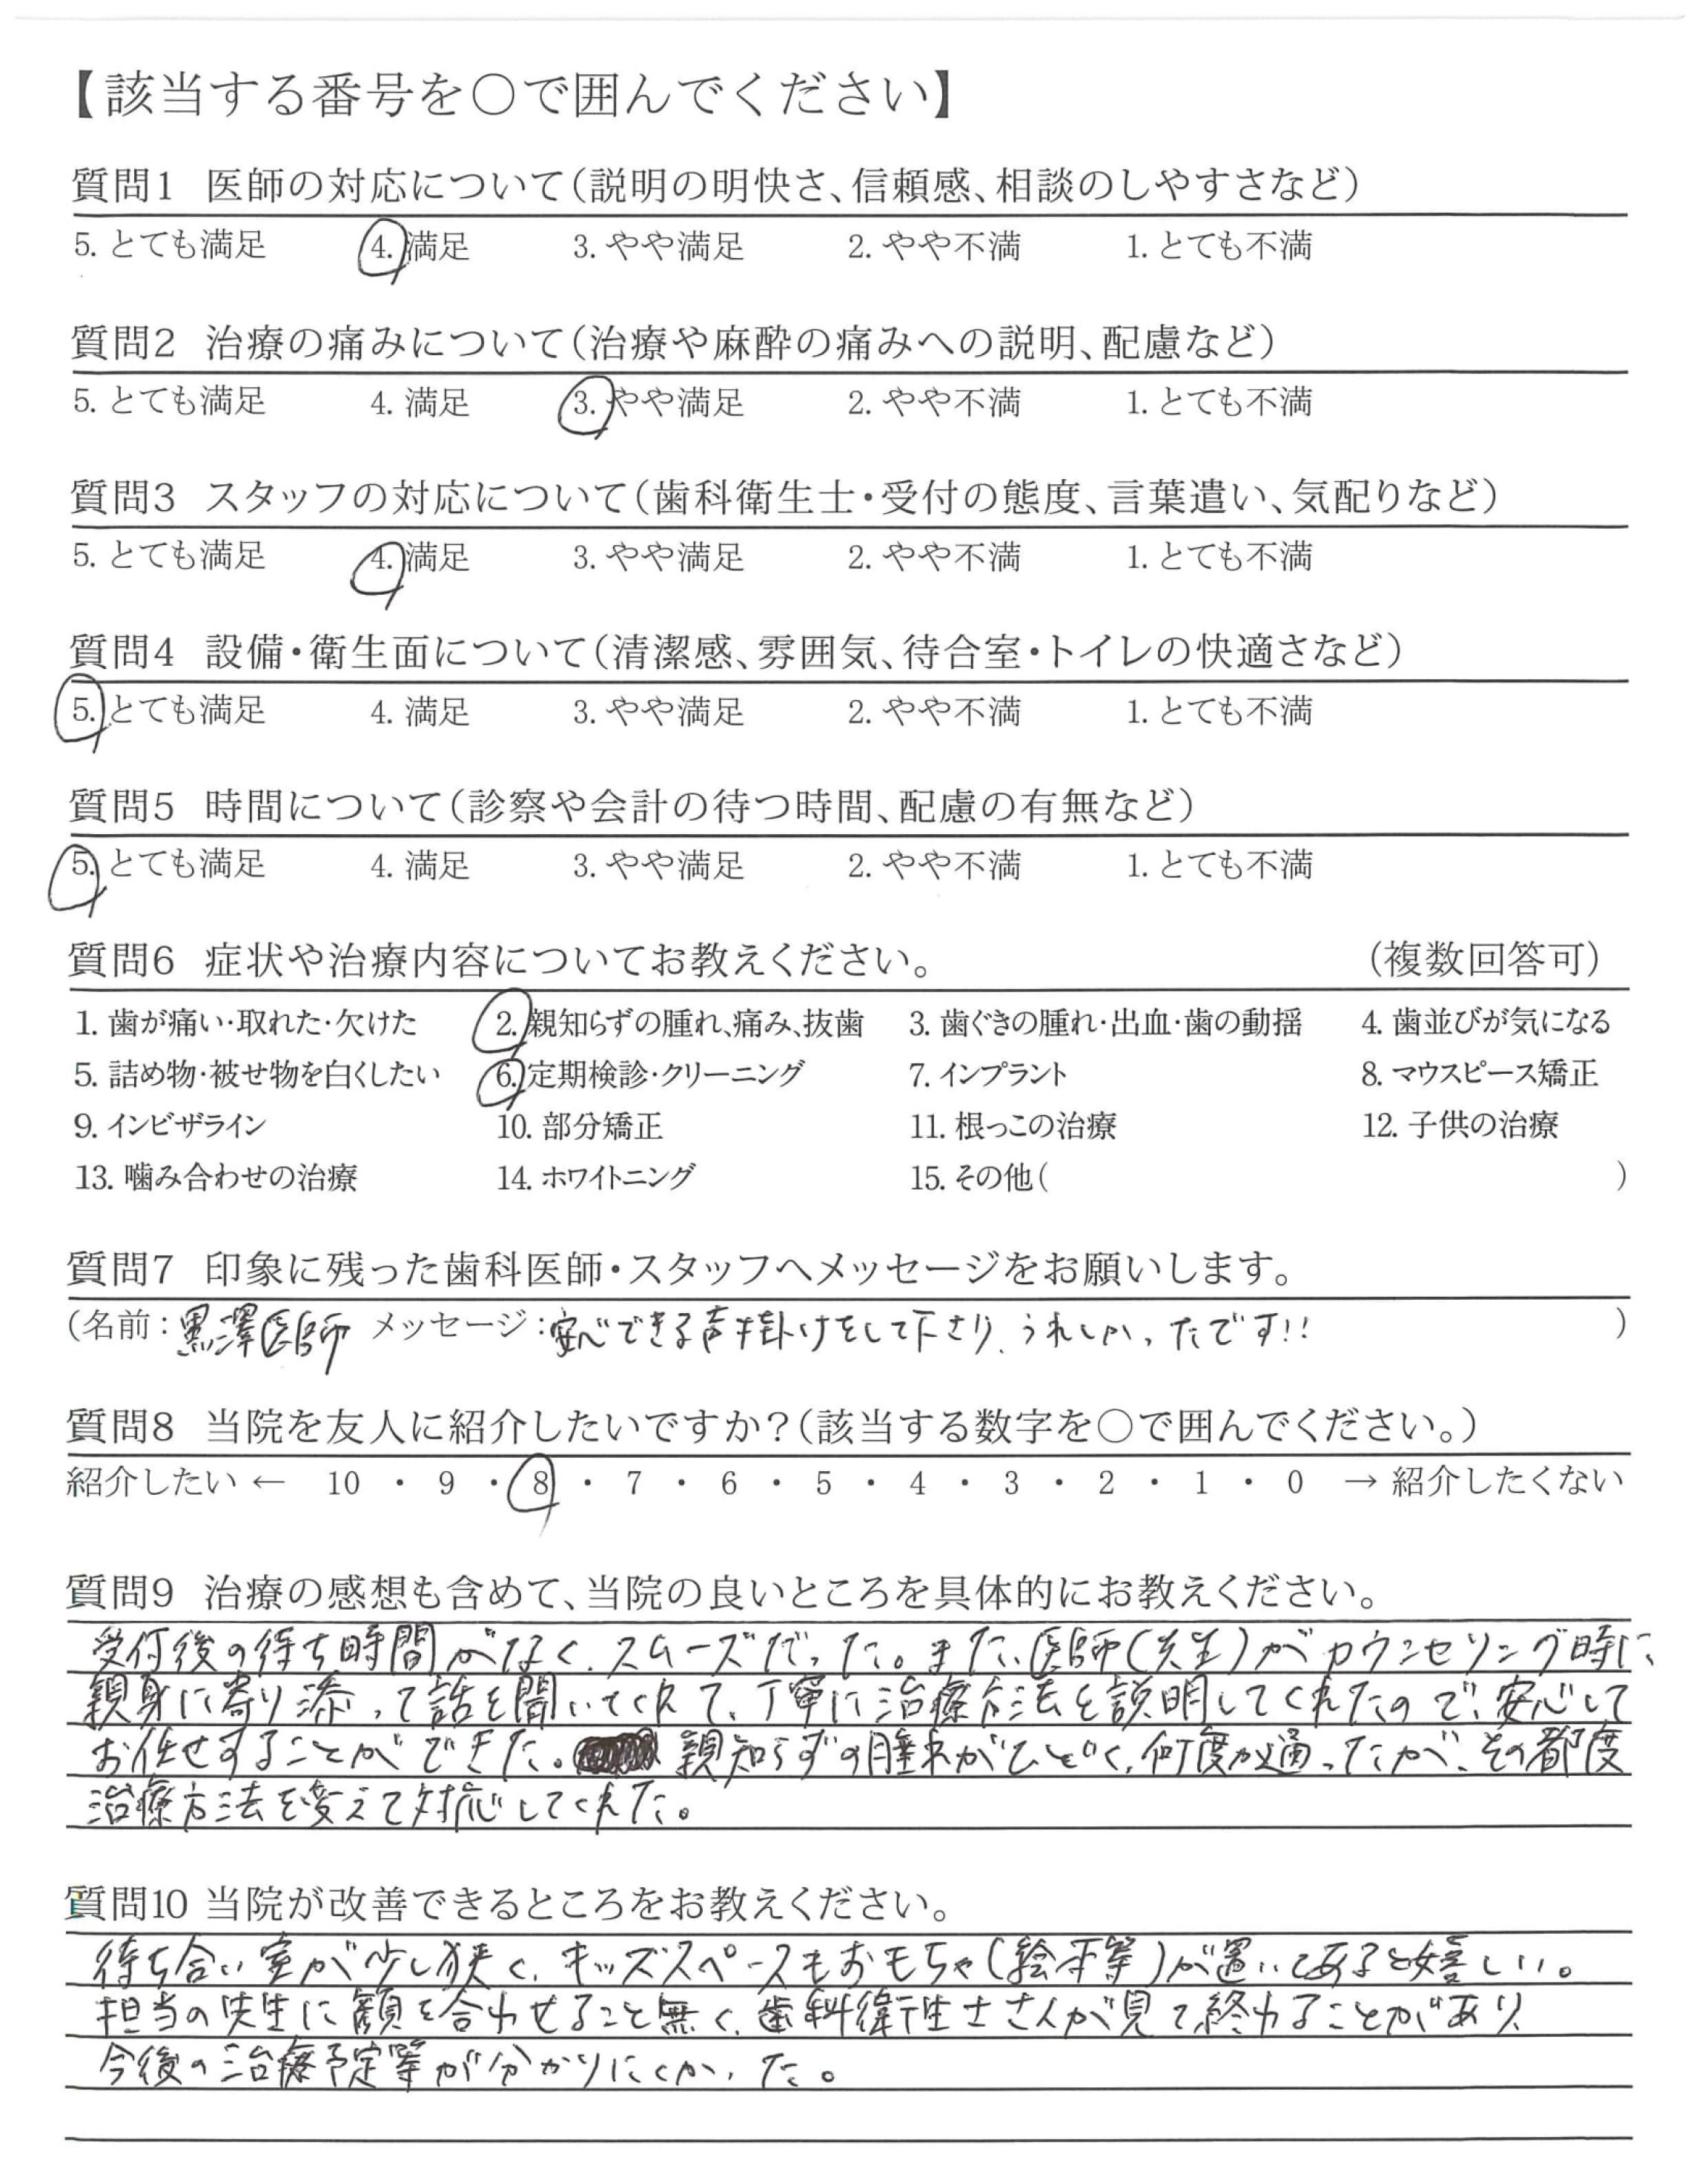 【該当する番号を〇で囲んでください】
質問1 医師の対応について(説明の明快さ、信頼感、相談のしやすさなど)
5. とても満足 4. 満足 3. やや満足 2. やや不満 1. とても不満
質問2 治療の痛みについて(治療や麻酔の痛みへの説明、配慮など)
5. とても満足 4. 満足 3. やや満足 2. やや不満 1. とても不満
質問3 スタッフの対応について(歯科衛生士・受付の態度、言葉遣い、気配りなど)
5. とても満足 4. 満足 3. やや満足 2. やや不満 1. とても不満
質問4 設備・衛生面について(清潔感、雰囲気、待合室・トイレの快適さなど)
5. とても満足 4. 満足 3. やや満足 2. やや不満 1. とても不満
質問5 時間について(診察や会計の待つ時間、配慮の有無など)
5. とても満足 4. 満足 3. やや満足 2. やや不満 1. とても不満
質問6 症状や治療内容についてお教えください。 (複数回答可)
1. 歯が痛い・取れた・欠けた 2. 親知らずの腫れ、痛み、抜歯 3. 歯ぐきの腫れ・出血・歯の動揺 4. 歯並びが気になる
5. 詰め物・被せ物を白くしたい 6. 定期検診・クリーニング 7. インプラント 8. マウスピース矯正
9. インビザライン 10. 部分矯正 11. 根っこの治療 12. 子供の治療
13. 噛み合わせの治療 14. ホワイトニング 15. その他( )
質問7 印象に残った歯科医師・スタッフへメッセージをお願いします。
(名前:黒澤医師 メッセージ:安心できる声掛けをして下さり、うれしかったです!! )
質問8 当院を友人に紹介したいですか?(該当する数字を〇で囲んでください。)
紹介したい ← 10 ・ 9 ・ 8 ・ 7 ・ 6 ・ 5 ・ 4 ・ 3 ・ 2 ・ 1 ・ 0 → 紹介したくない
質問9 治療の感想も含めて、当院の良いところを具体的にお教えください。
受付後の待ち時間がなく、スムーズだった。また、医師(先生)がカウンセリング時に、
親身に寄り添って話を聞いてくれて、丁寧に治療方法を説明してくれたので、安心して
お任せすることができた。 親知らずの腫れがひどく、何度か通ったが、その都度
治療方法を変えて対応してくれた。
質問10 当院が改善できるところをお教えください。
待ち合い室が少し狭く、キッズスペースもおもちゃ(絵本等)が置いてあると嬉しい。
担当の先生に顔を合わせること無く、歯科衛生士さんが見て終わることがあり、
今後の治療予定等が分かりにくかった。